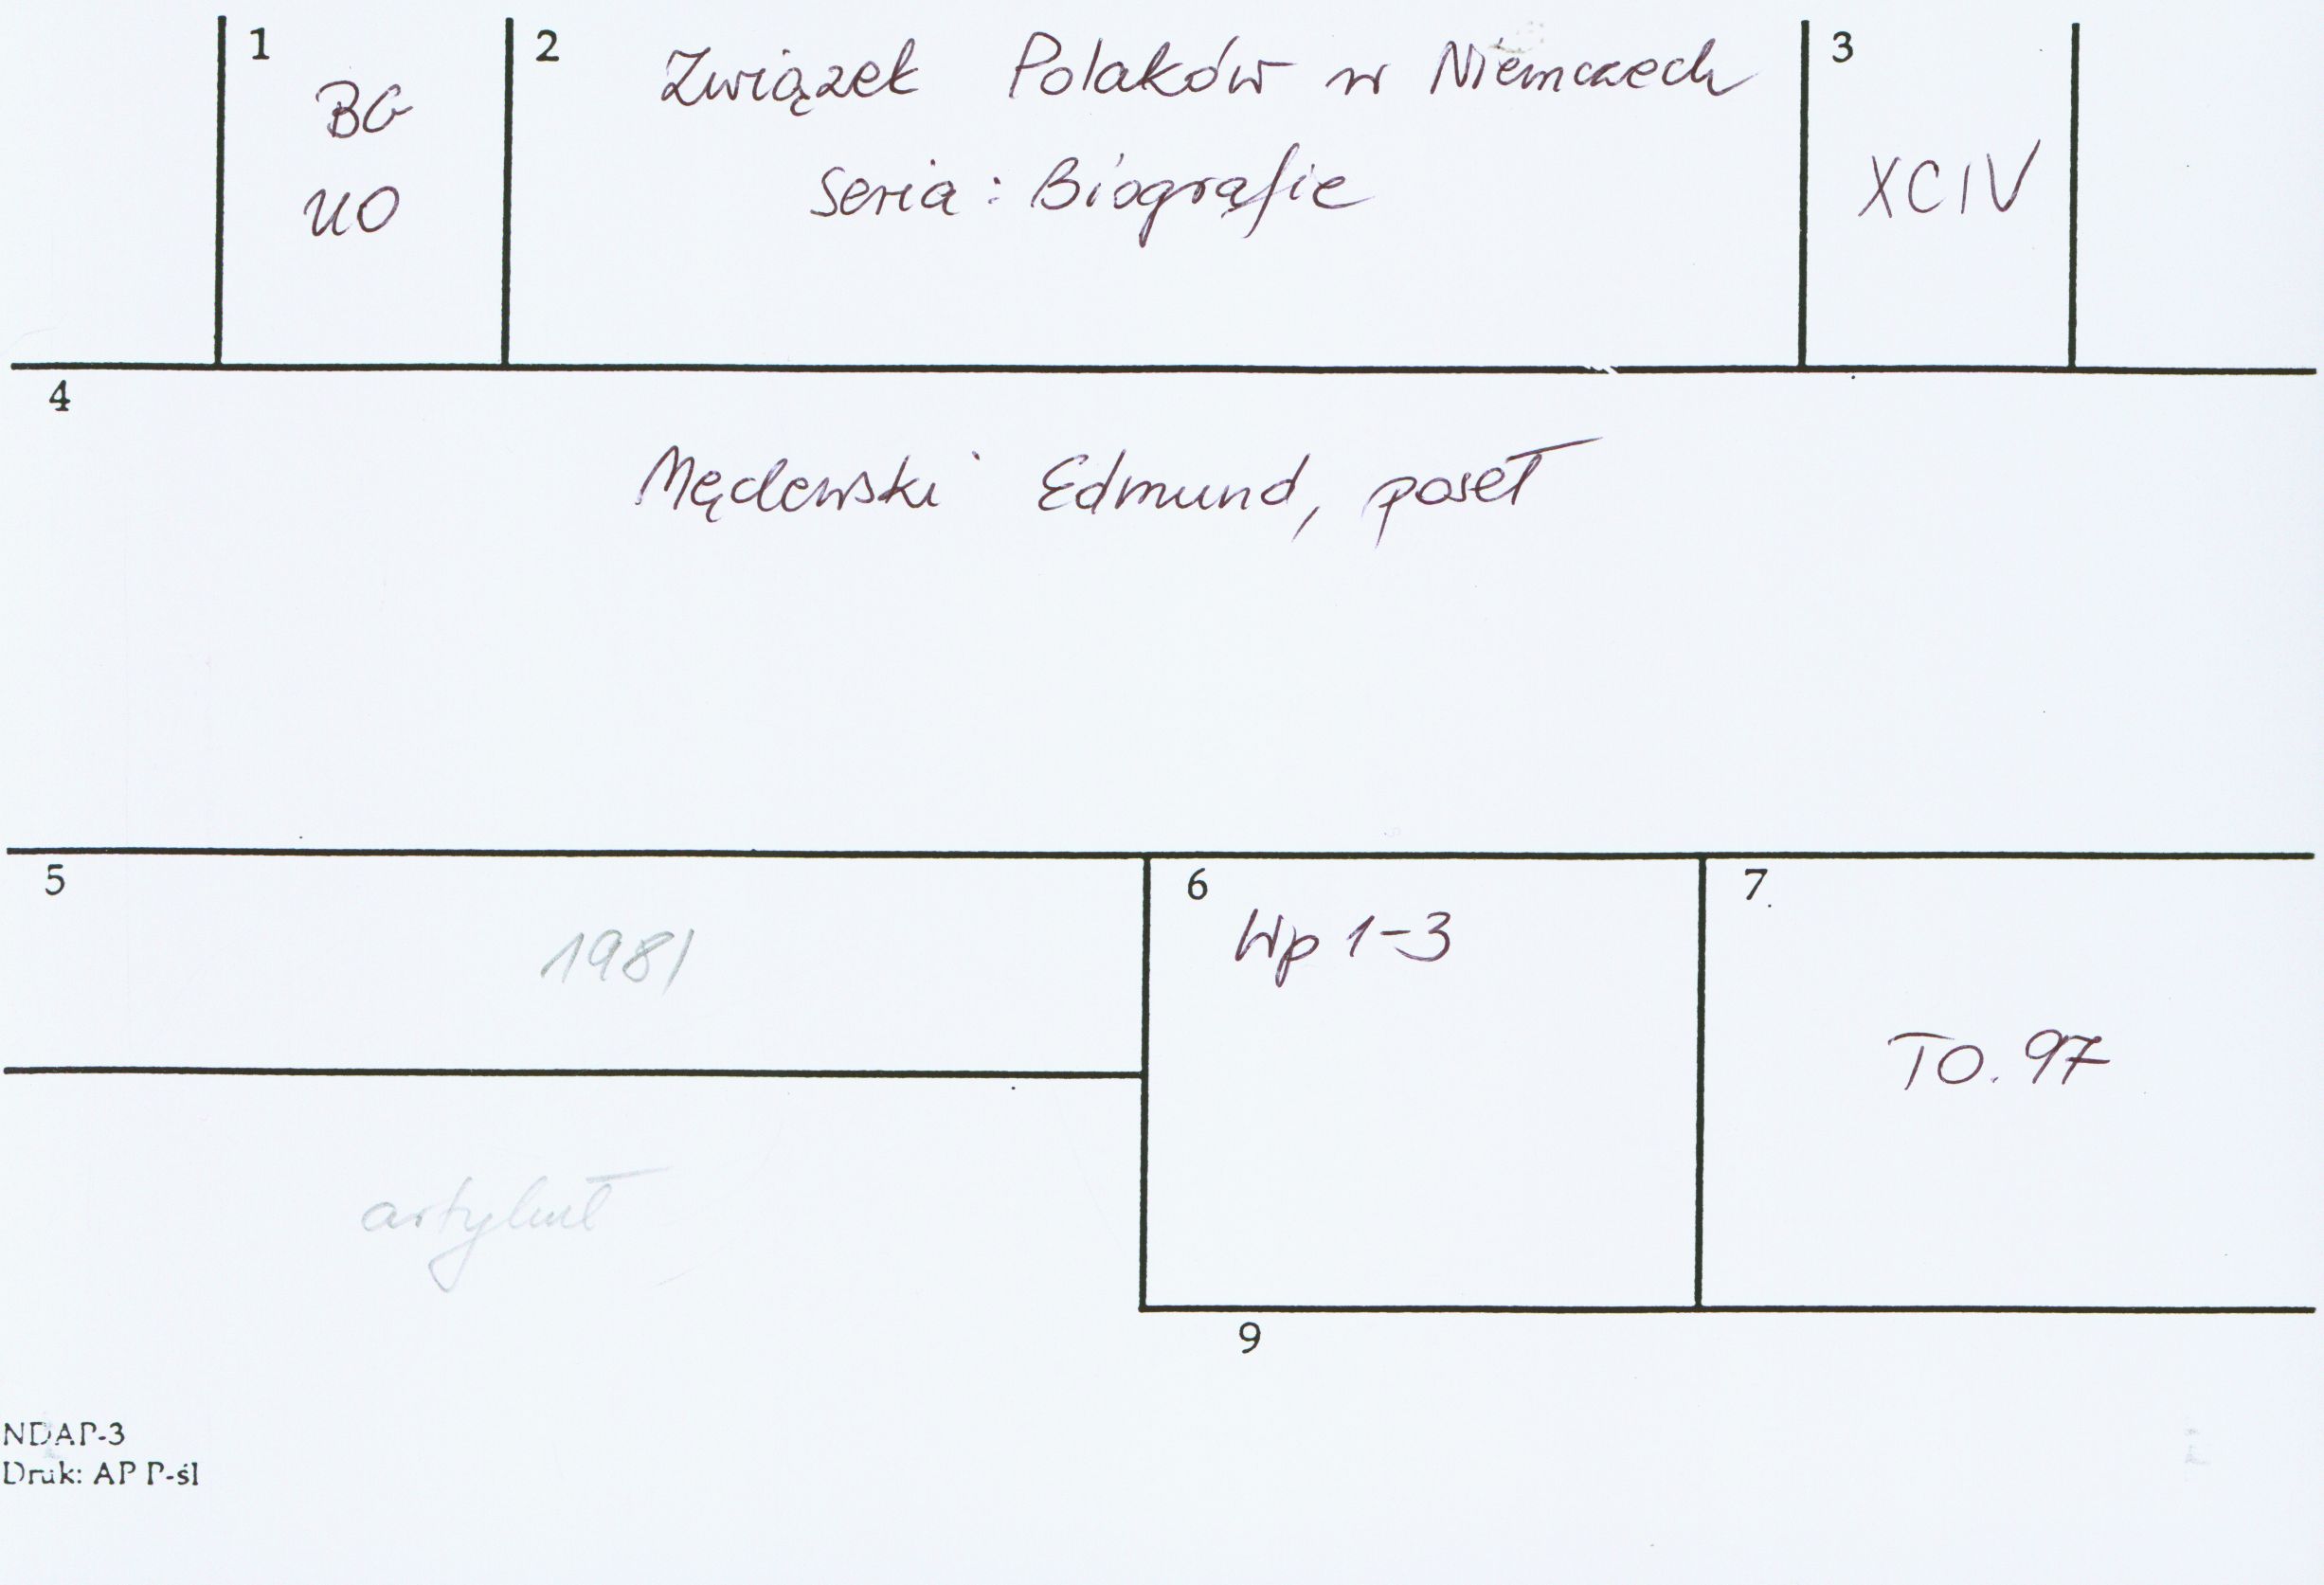 1
BG
UO
2
Związek Polaków w Niemczech
seria: Biografie
3
XCIV
4
Mędewski Edmund, poseł
5
1981
6
Wp 1-3
7
TO. 97
artykuł
9
NDAP-3
Druk: AP P-śl